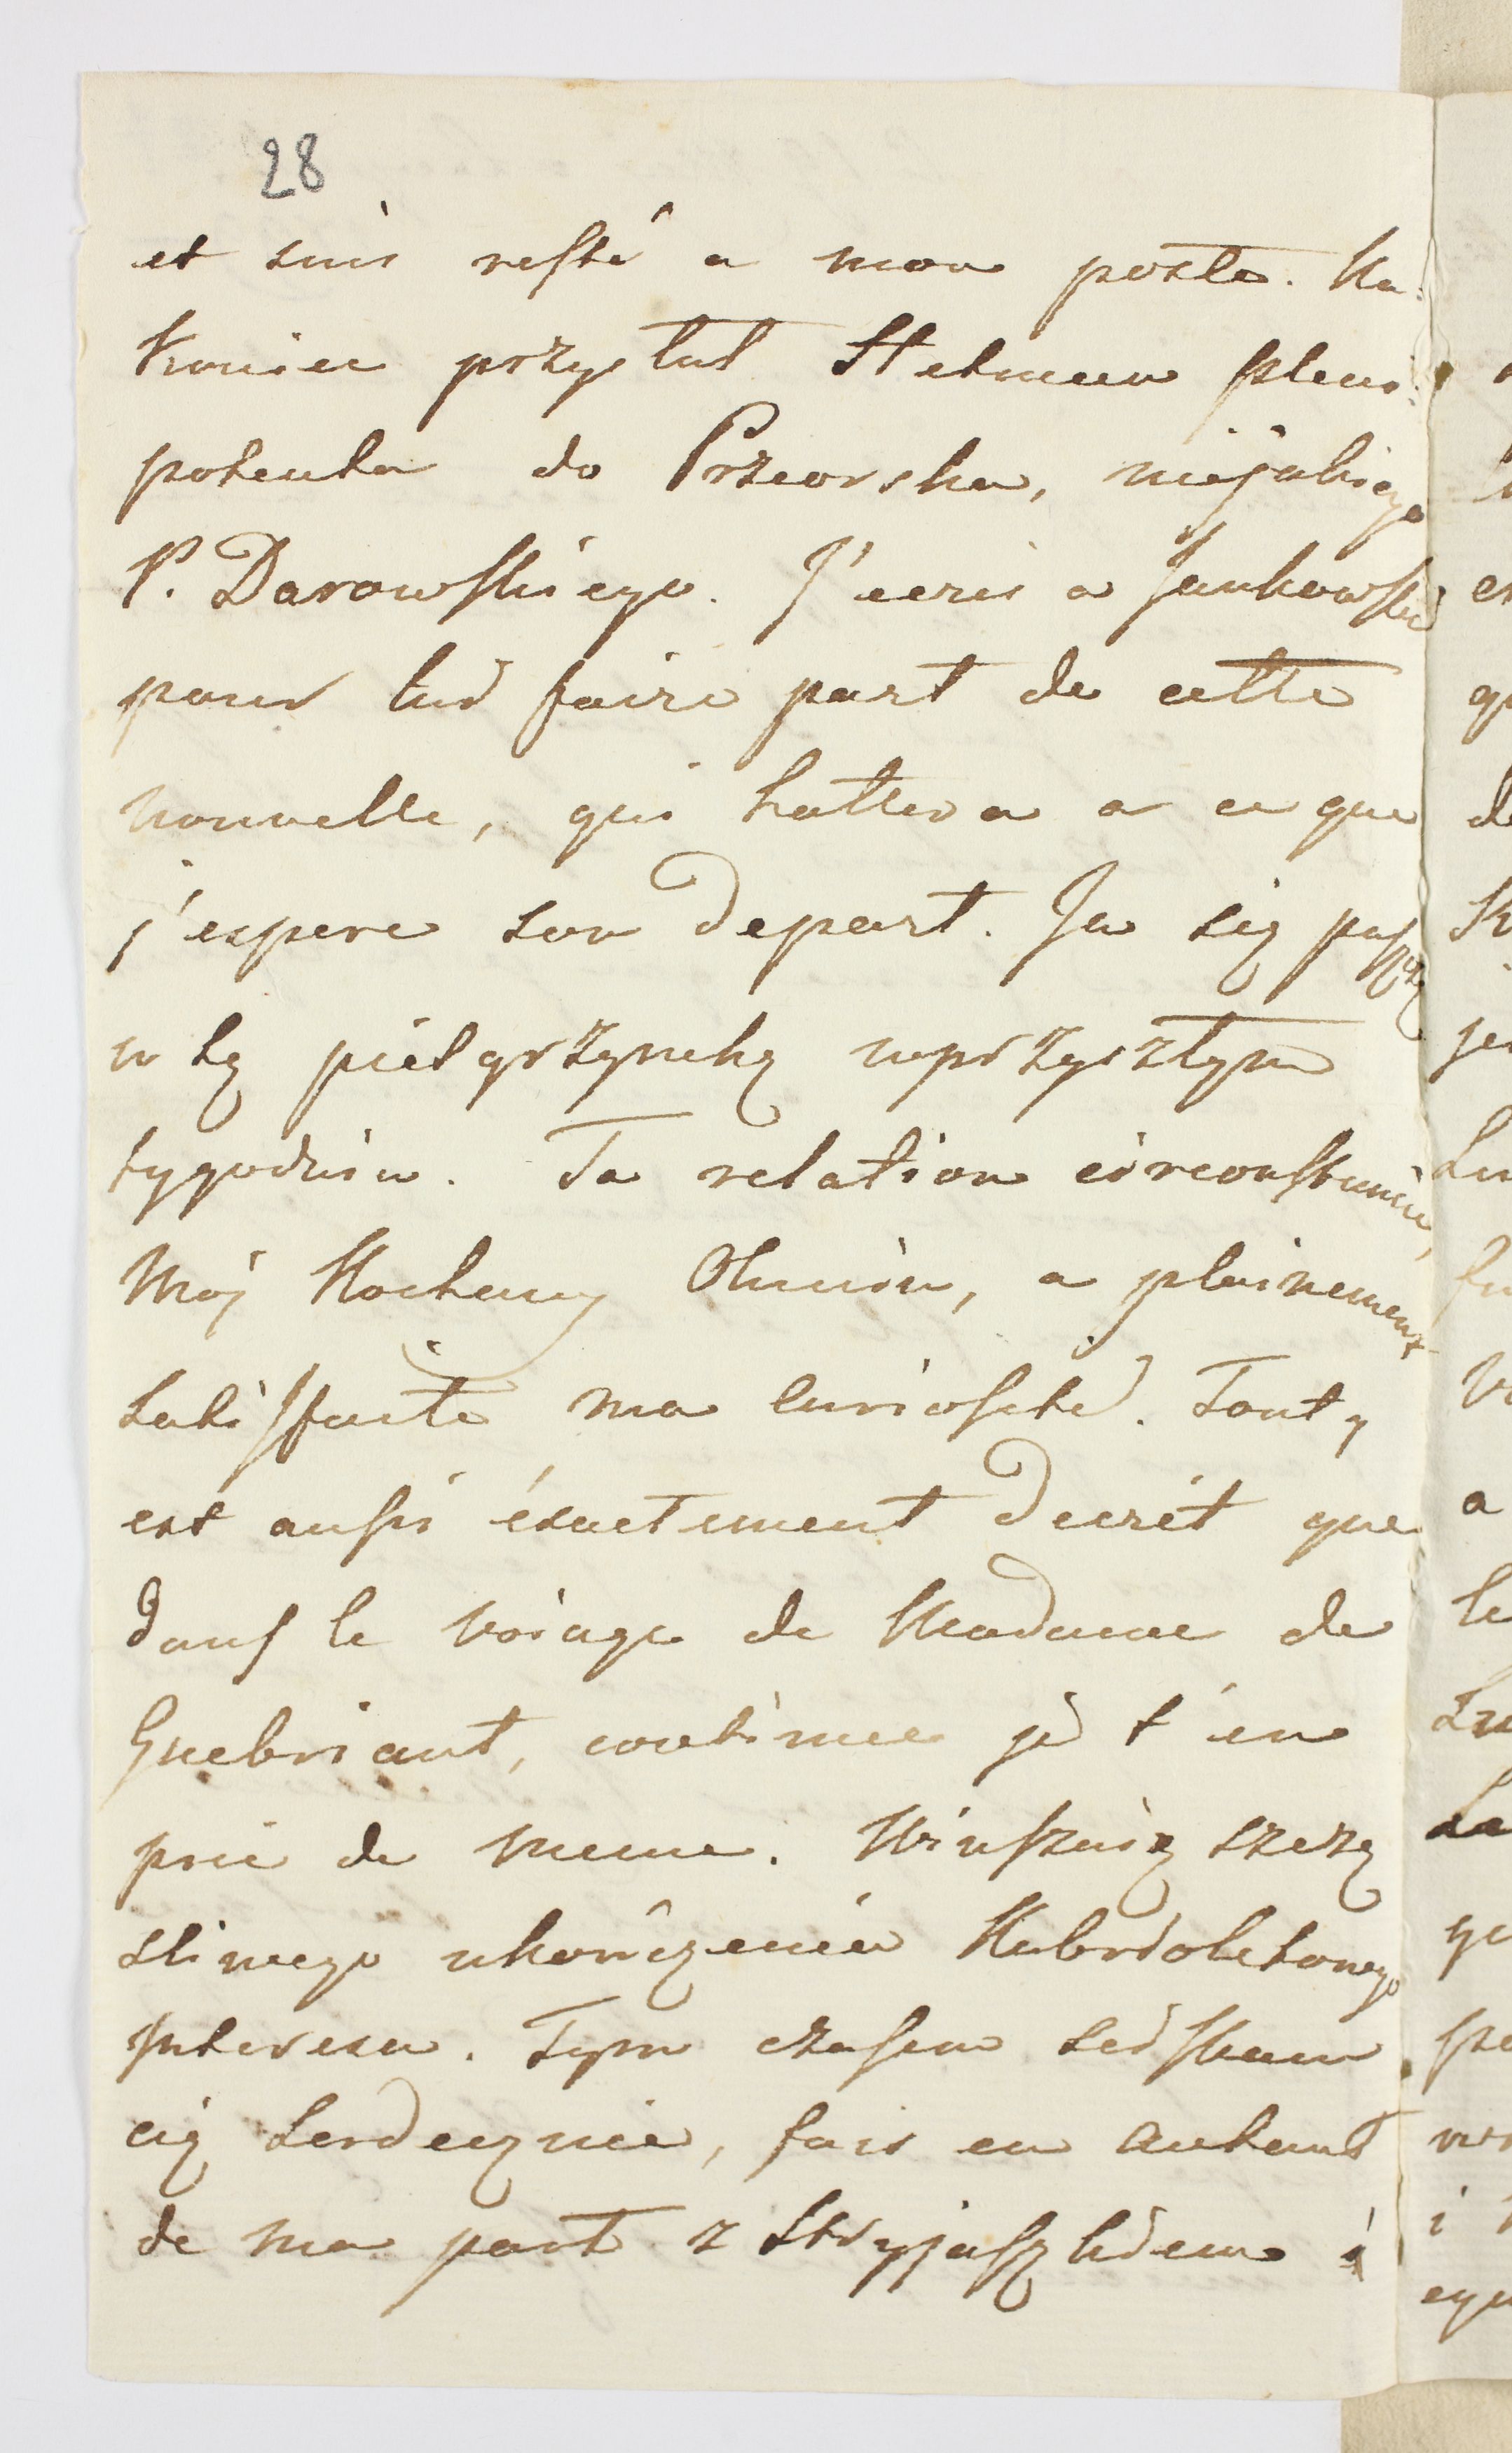 28
et suis resté a mon poste. Na-
koniec przysłał Hetman pleni-
potenta do Przeworska, niejakiego
P. Darowskiego. J'ecris a Jankowski
pour lui faire part de cette
nouvelle, qui hattera a ce que
j'espere son depart. Ja się puszczę
w tę pielgrzymkę w przyszłym
tygodniu. Ta relation circonstanciée,
Mój Kochany Olesiu, a plainement
satisfaite ma curiosité. Tout y
est aussi éxactement decrit que
dans le voiage de Madame de
Guebriant, continue je t'en
prie de meme. Winszuię szczę
śliwego ukończenia
Interesu. Tym czasem ściskam
cię serdecznie, fais en autant
de ma part z Stryjaszkiem i